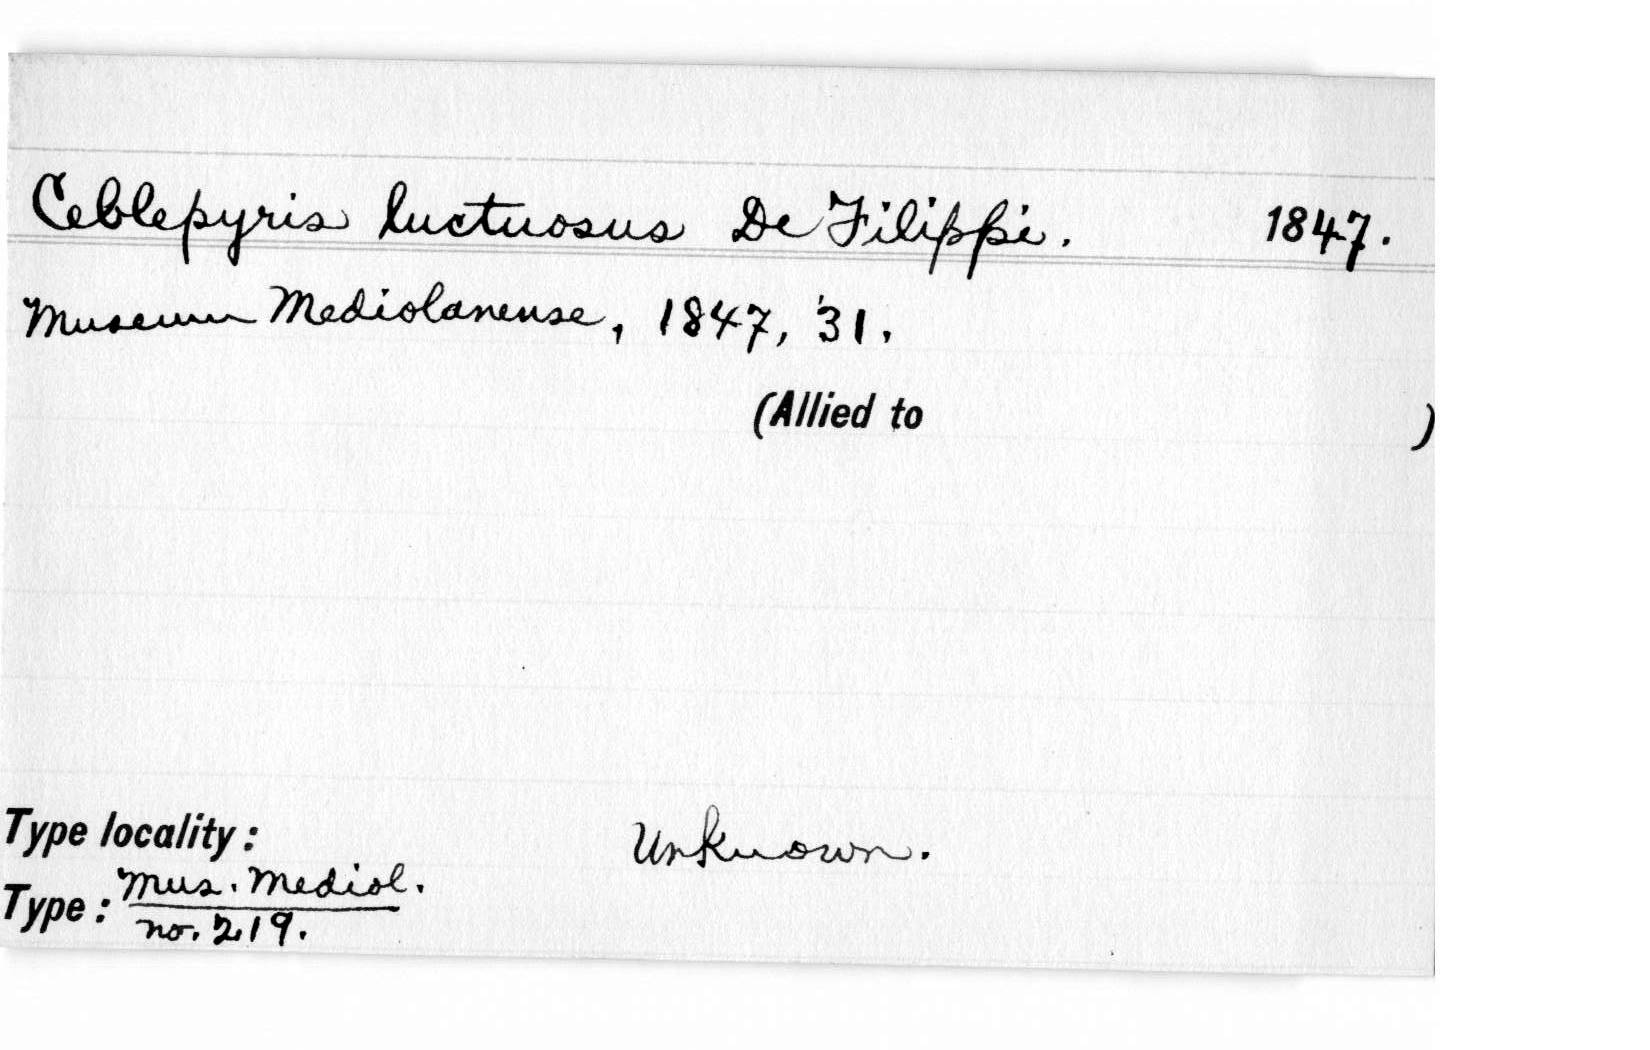 Ceblepyris luctuosus De Filippi. 1847.
Museum Mediolanense, 1847, 31.
(Allied to )
Type locality: Unknown.
Type: Mus. Mediol.
no. 219.